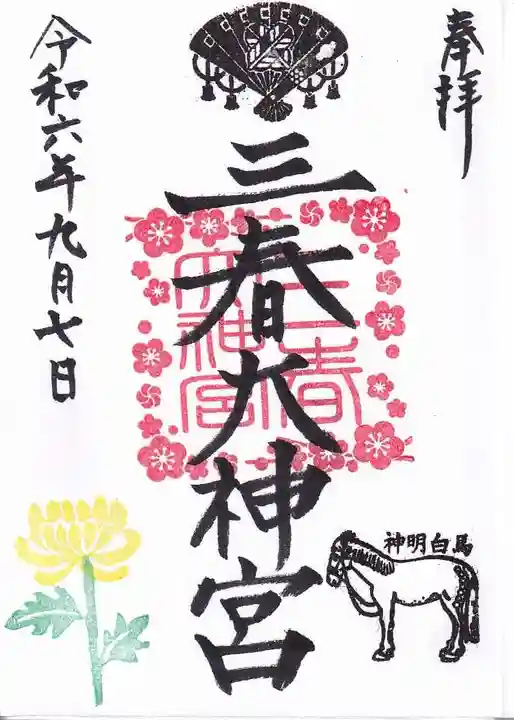 奉拝
三春大神宮
三春
大神宮
令和六年九月七日
神明白馬